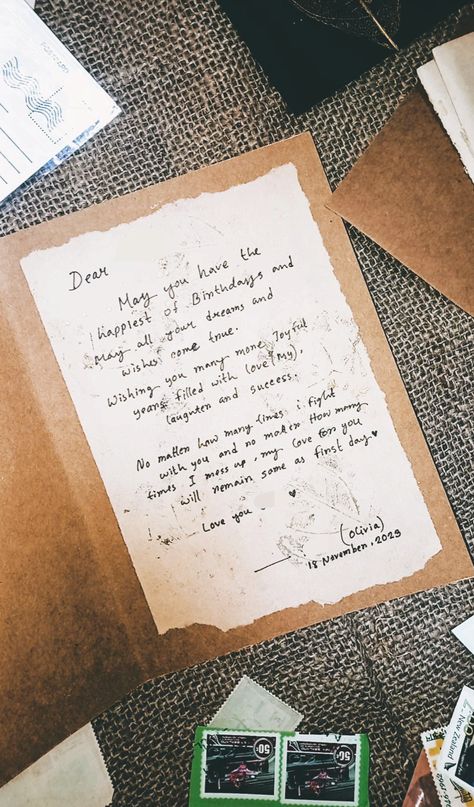 Dear
May you have the
happiest of Birthdays and
May all your dreams and
wishes come true.
Wishing you many more Joyful
years filled with love (My),
laughter and success.
No matter how many times i fight
with you and no matter How many
times I mess up, my love for you
will remain same as first day ♥
Love you - ♥
(Olivia)
18 November, 2023
50c
50c
New Zealand